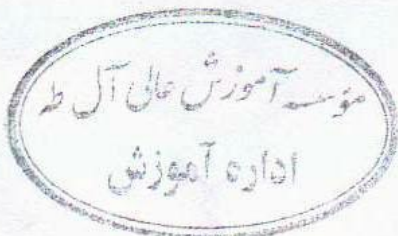 مؤسسه آموزش عالی آل طه
اداره آموزش